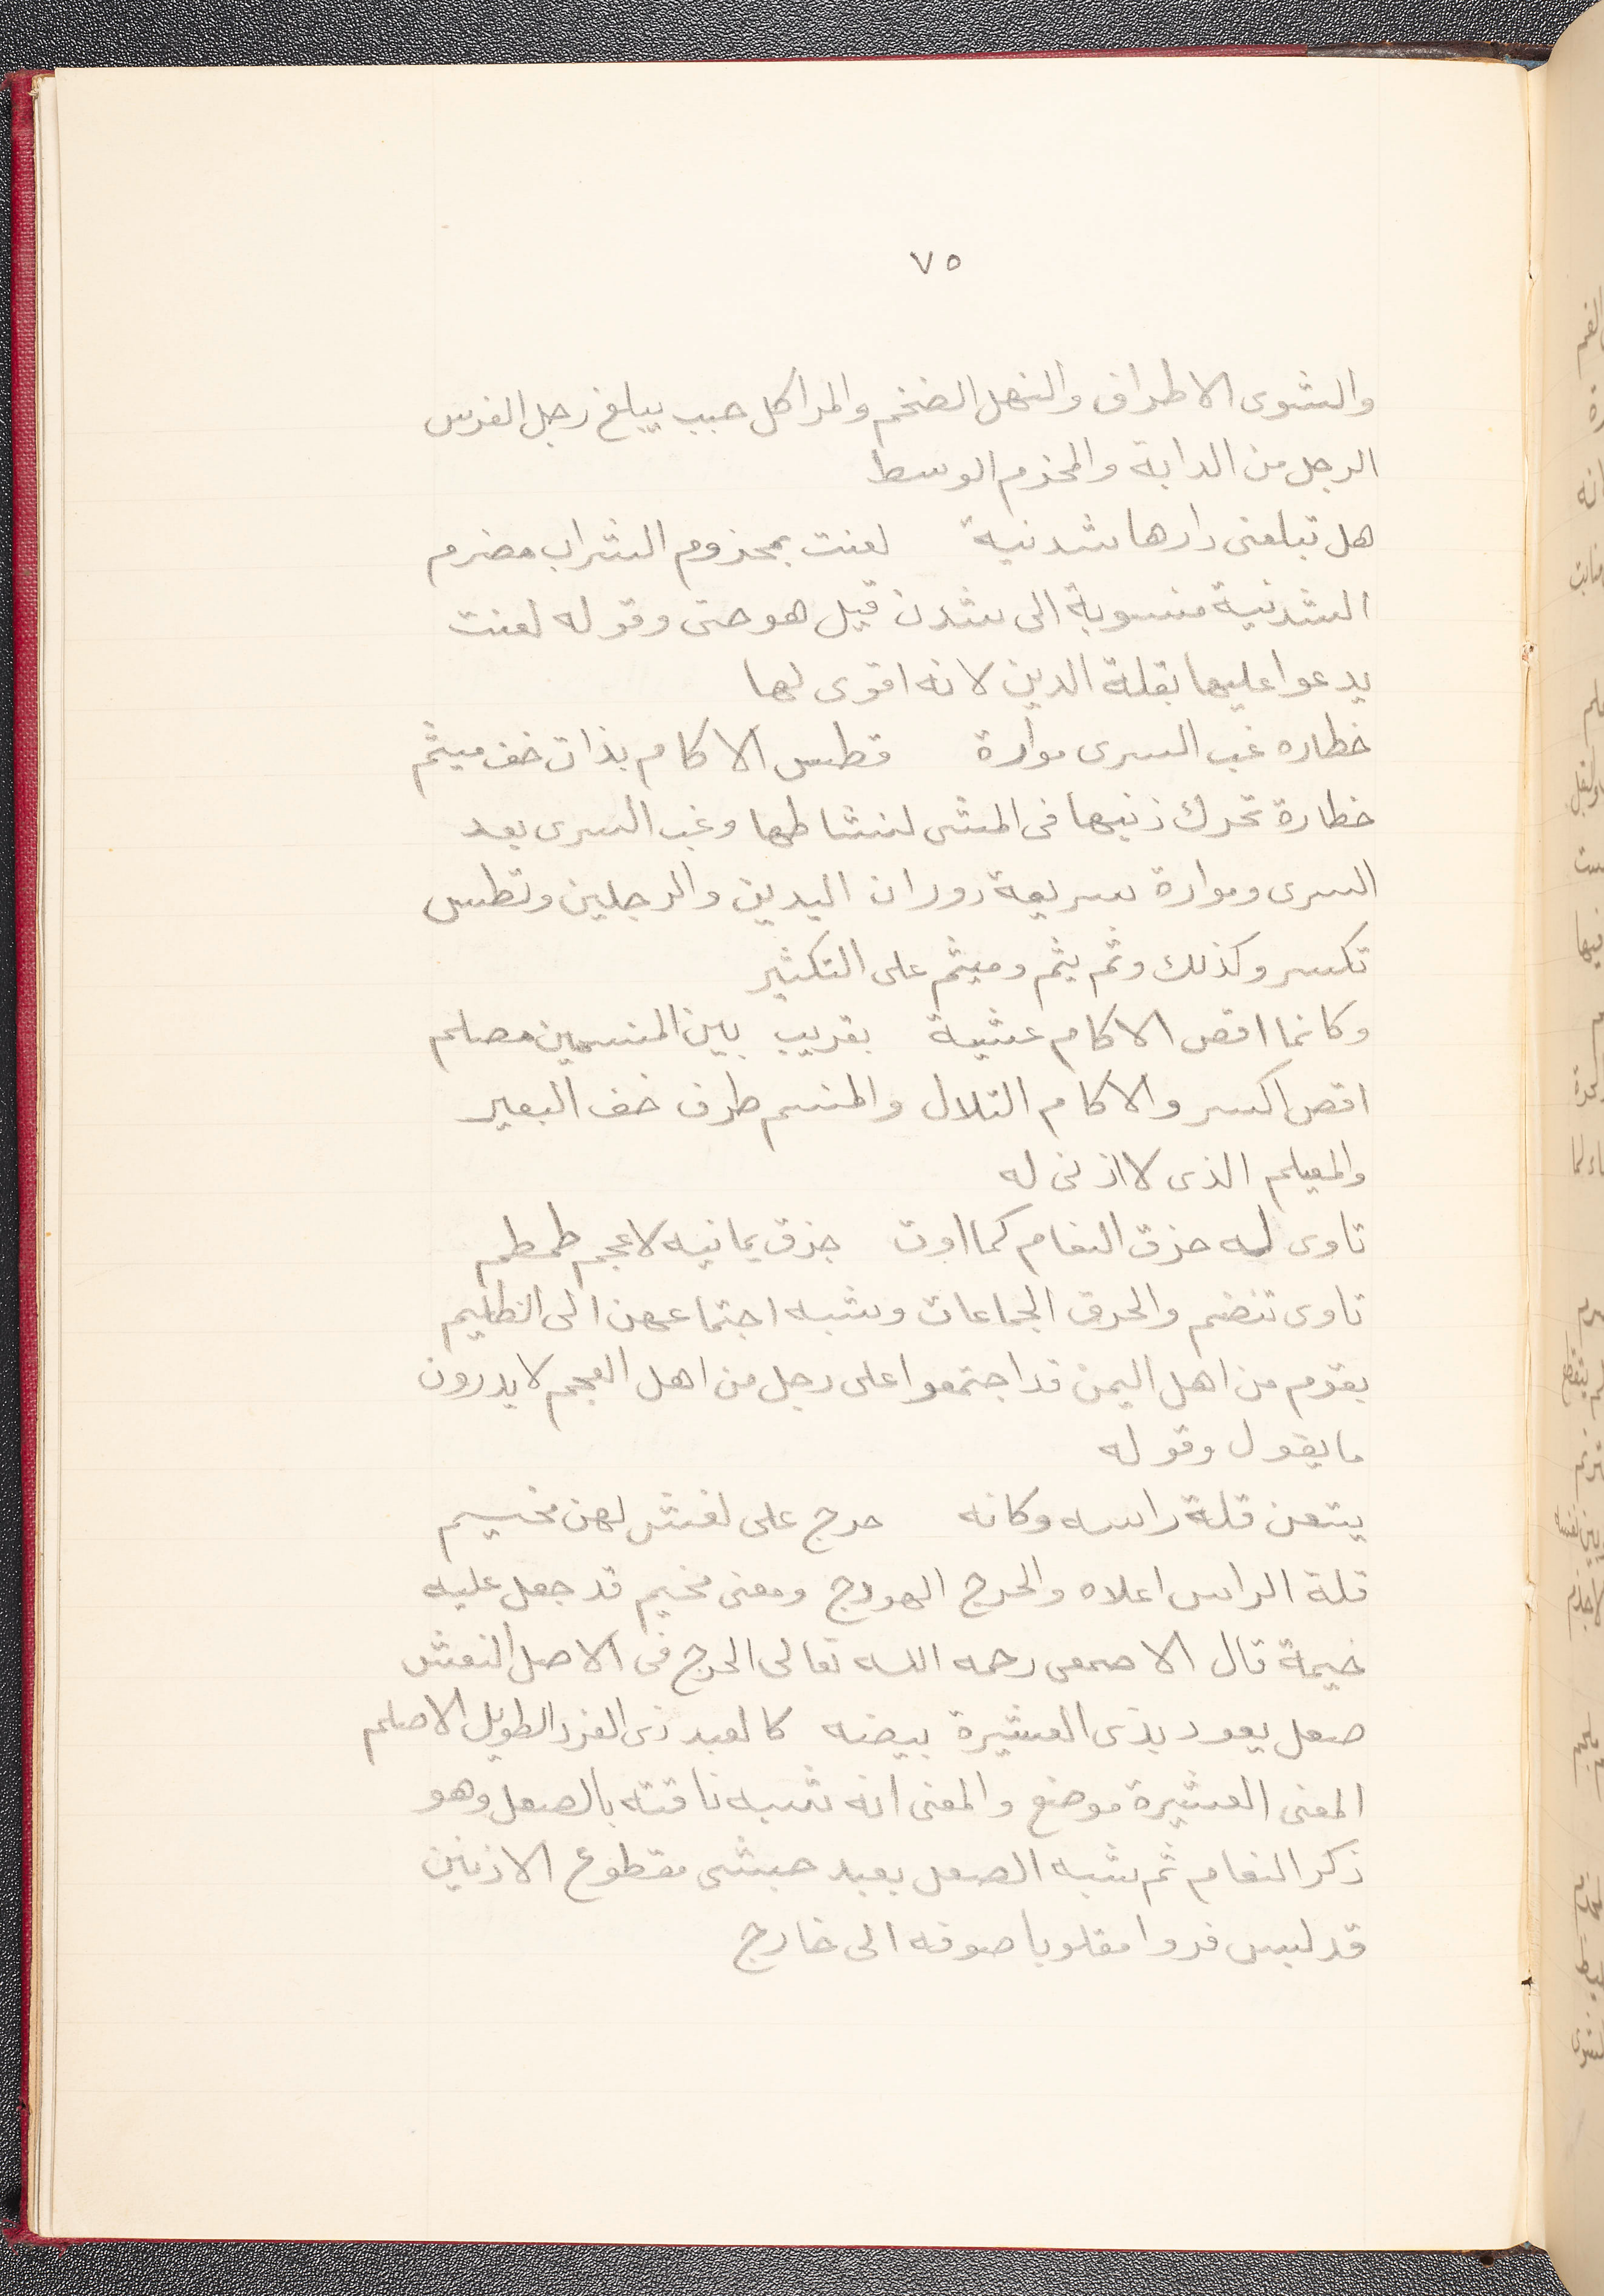 ٧٥
والشوى الاطراف والنهل الضخم والمراكل حبب يبلغ رجل الفرس
الرجل من الدابة والمحزم الوسط
هل تبلغنى دارها شدنية لعنت بمحزوم الشراب مصرم
الشدنية منسوبة الى شدن قيل هو حتى وقوله لعنت
يدعوا عليها بقلة الدين لانه اقوى لها
خطاره غب السرى موارة تطس الاكام بذات خف ميثم
خطارة تحرك ذنبها فى المشى لنشاطها وغب السرى بعد
السرى وموارة سريعة دوران اليدين والرجلين وتطس
تكسر وكذلك وثم يثم وميثم على التكثير
وكانما اقص الاكام عشية بقريب بين المنسمين مصلم
اقص اكسر والاكام التلال والمنسم طرف خف البعير
والمصلم الذى لا اذنى له
تاوى له حزق النعام كما اوت حزق يمانيه لاعجم طمطم
تاوى تنضم والحزق الجماعات وشبه اجتماعهن الى الظليم
بقوم من اهل اليمن قد اجتمعوا على رجل من اهل العجم لا يدرون
ما يقول وقوله
يتبعن قلة راسه وكانه حرج على نعش لهن مخيم
قلة الراس اعلاه والحرج الهودج ومعنى مخيم قد جعل عليه
خيمة قال الاصمعى رحمه الله تعالى الحرج فى الاصل النعش
صعل يعود بذى العشيرة بيضه كالعبد ذى الفرد الطويل الاصلم
المعنى العشيرة موضع والمعنى انه شبه ناقته بالصعل وهو
ذكر النعام ثم شبه الصعل بعبد حبشى مقطوع الاذنين
قد لبس فروا مقلوبا صوفه الى خارج